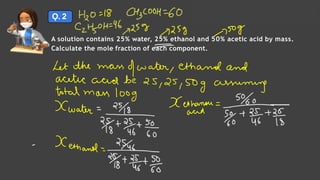 Q. 2
H₂O=18 CH₃COOH=60
C₂H₅OH=46 25g 25g 50g
A solution contains 25% water, 25% ethanol and 50% acetic acid by mass.
Calculate the mole fraction of each component.
Let the mass of water, ethanol and
acetic acid be 25, 25, 50g assuming
total mass 100g
X water = 25/18 / 25/18 + 25/46 + 50/60
X ethanoic acid = 50/60 / 50/60 + 25/46 + 25/18
X ethanol = 25/46 / 25/18 + 25/46 + 50/60